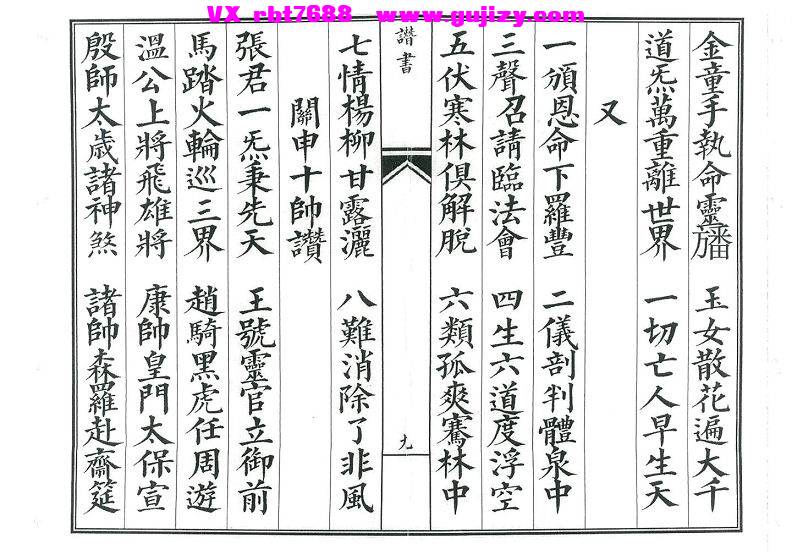 VX rbt7688 www.gujizy.com
金童手執命靈旛 玉女散花遍大千
道炁萬重離世界 一切亡人早生天
又
一頒恩命下羅豐 二儀剖判體泉中
三聲召請臨法會 四生六道度浮空
五伏寒林俱解脫 六類孤爽騫林中
讚書
九
七情楊柳甘露灑 八難消除了非風
關申十帥讚
張君一炁秉先天 王號靈官立御前
馬踏火輪巡三界 趙騎黑虎任周遊
溫公上將飛雄將 康帥皇門太保宣
殷師太歲諸神煞 諸帥森羅赴齋筵